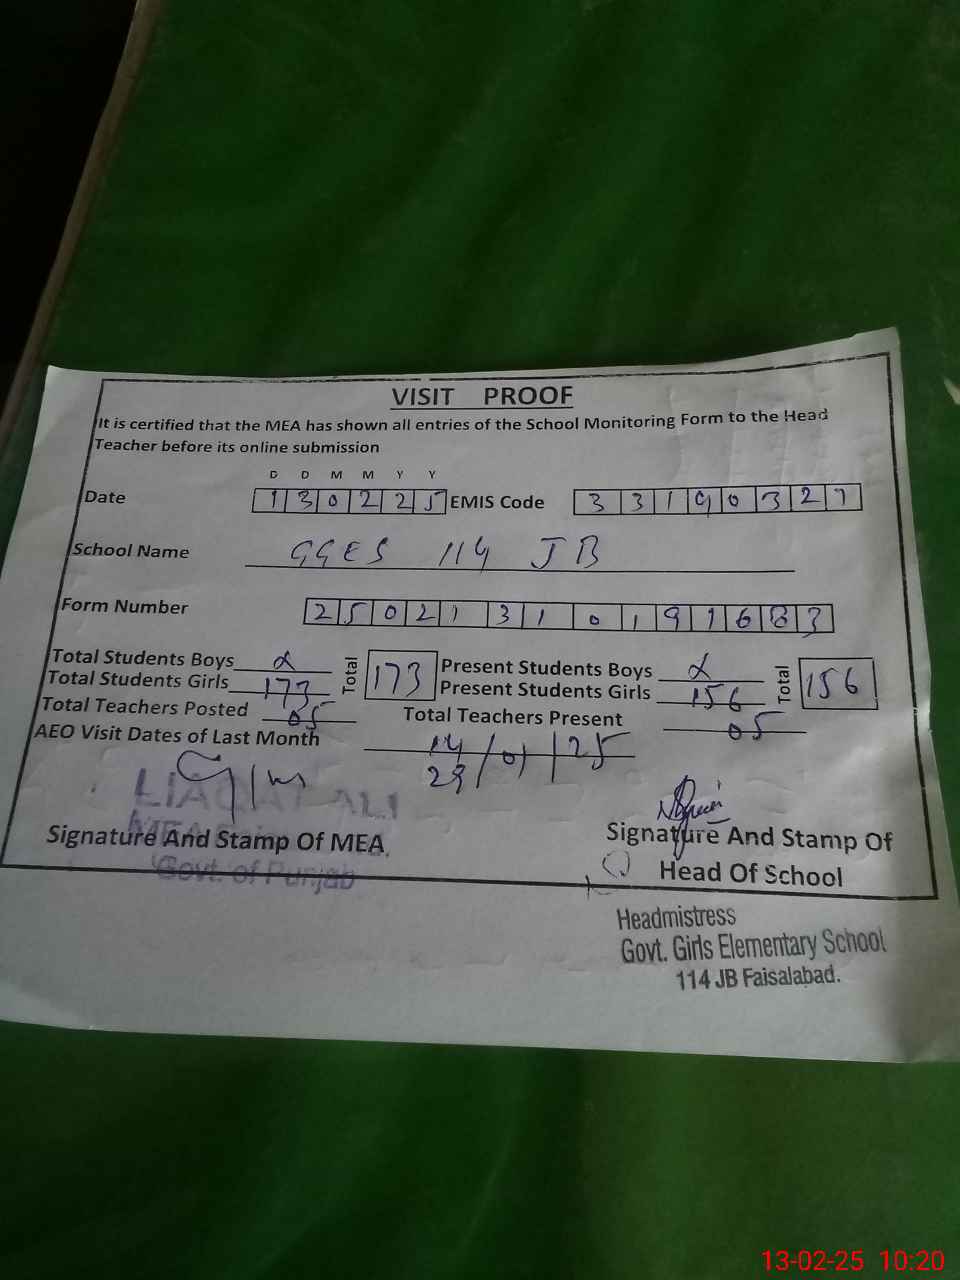 VISIT PROOF
It is certified that the MEA has shown all entries of the School Monitoring Form to the Head
Teacher before its online submission
D D M M Y Y
Date 1 3 0 2 2 5 EMIS Code 3 3 1 9 0 3 2 7
School Name GGES 114 JB
Form Number 2 5 0 2 1 3 1 0 1 9 1 6 8 3
Total Students Boys Total 173 Present Students Boys Total 156
Total Students Girls 173 Present Students Girls 156
Total Teachers Posted 05 Total Teachers Present 05
AEO Visit Dates of Last Month 14 / 01 / 25
29
LIAQAT ALI
MEA
Signature And Stamp Of MEA.
Govt. of Punjab
Signature And Stamp Of
Head Of School
Headmistress
Govt. Girls Elementary School
114 JB Faisalabad.
13-02-25 10:20